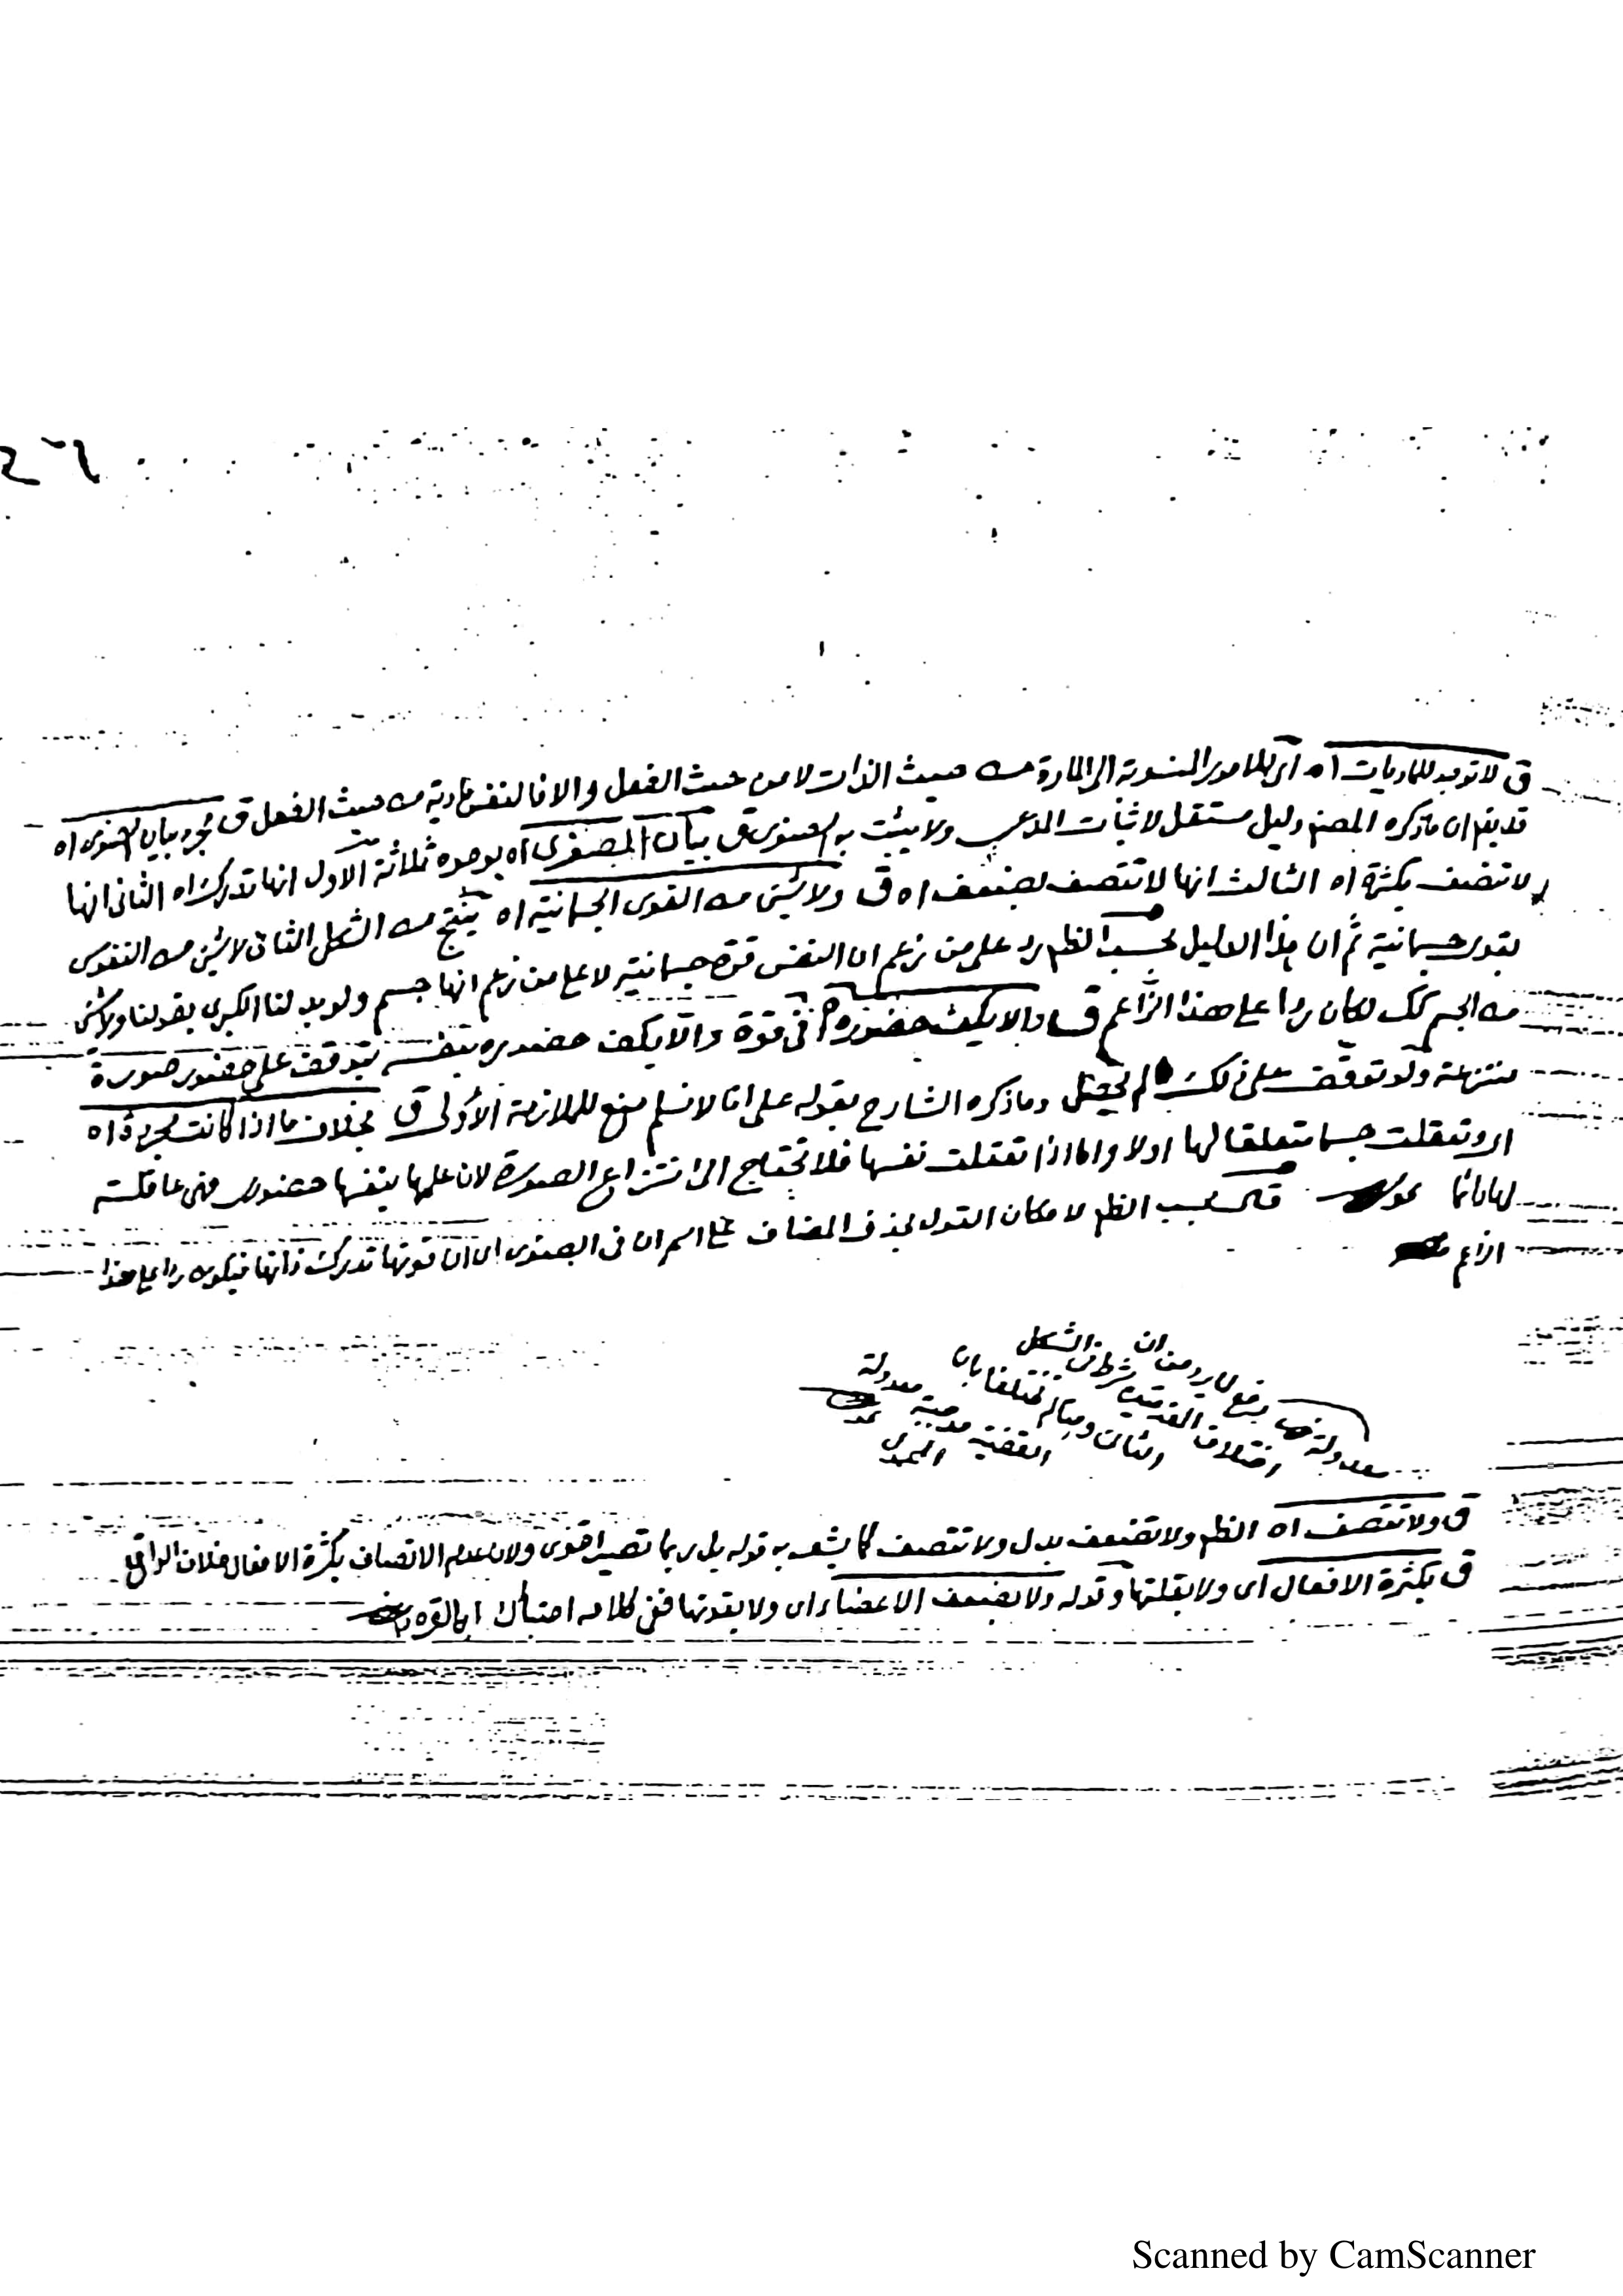 ٢٦
ق لا توجد للماديات اه اى للامور المنسوبة الى المادة من حيث الذات لا من حيث الفعل والا فالنفس مادية من حيث الفعل ق بيان الصغرى اه
قد يقال ان ما ذكره المصنف دليل مستقل لاثبات المدعى ولا يثبت به الصغرى ق بيان الصغرى اه بوجوه ثلاثة الاول انها تدرك اه الثانى انها
لا تتصف بكثرة اه الثالث انها لا تتصف بضعف اه ق ولا شئ من القوى الجسمانية اه ينتج من الشكل الثانى لا شئ من النفوس
بقوى جسمانية ثم ان هذا الدليل بحسب الظم رد على من زعم ان النفس قوة جسمانية لا على من زعم انها جسم ولو بدلنا الكبرى بقولنا ولا شئ
من الجسم كك لكان ردا على هذا الزاعم ق والا يكف حضوره فى قوة والا يكف حضوره بنفسه بل يتوقف على حضور صورة
منتزعة ولو توقف على ذلك لم يحصل وما ذكره الشارح بقوله على انا لا نسلم منع للملازمة الاولى ق بخلاف ما اذا كانت مجردة اه
اى وتعقلت جسما متعلقا لها اولا واما اذا تعقلت نفسها فلا تحتاج الى انتزاع الصورة لان علمها بنفسها حضورى فهى عاقلة
لها دائما قلى بحسب الظم لامكان القول بحذف المضاف على اسم ان فى الصغرى اى ان قوتها تدرك ذاتها فيكون ردا على هذا
الزاعم
معدولة دفع لما يرد من ان
اختلاف المقدمتين شرط فى الشكل
الثانى ولم تختلفا بان
القضية موجبة معدولة
المحمول
ق ولا تتصف اه الظم ولا تضعف بدل ولا تتصف كما يشعر به قوله بل ربما تصير اقوى ولان عدم الاتصاف بكثرة الافعال خلاف الواقع
ق بكثرة الافعال اى ولا بقلتها وقوله ولا بضعف الاعضاء اى ولا بقوتها ففى كلامه احتباك